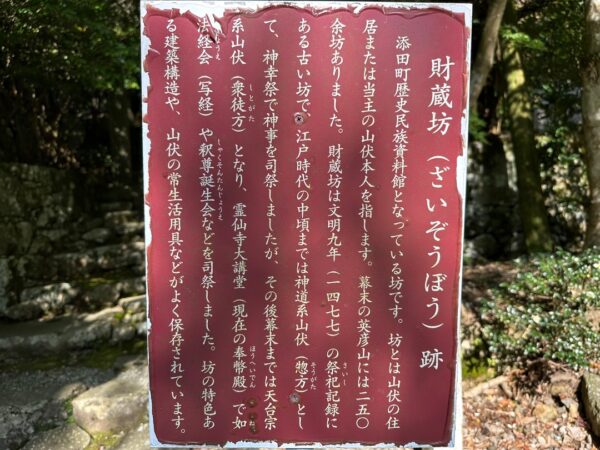 財蔵坊（ざいぞうぼう）跡
添田町歴史民族資料館となっている坊です。坊とは山伏の住
居または当主の山伏本人を指します。幕末の英彦山には二五〇
余坊ありました。財蔵坊は文明九年（一四七七）の祭祀記録に
ある古い坊で、江戸時代の中頃までは神道系山伏（惣方）とし
て、神幸祭で神事を司祭しましたが、その後幕末までは天台宗
系山伏（衆徒方）となり、霊仙寺大講堂（現在の奉幣殿）で如
法経会（写経）や釈尊誕生会などを司祭しました。坊の特色あ
る建築構造や、山伏の常生活用具などがよく保存されています。